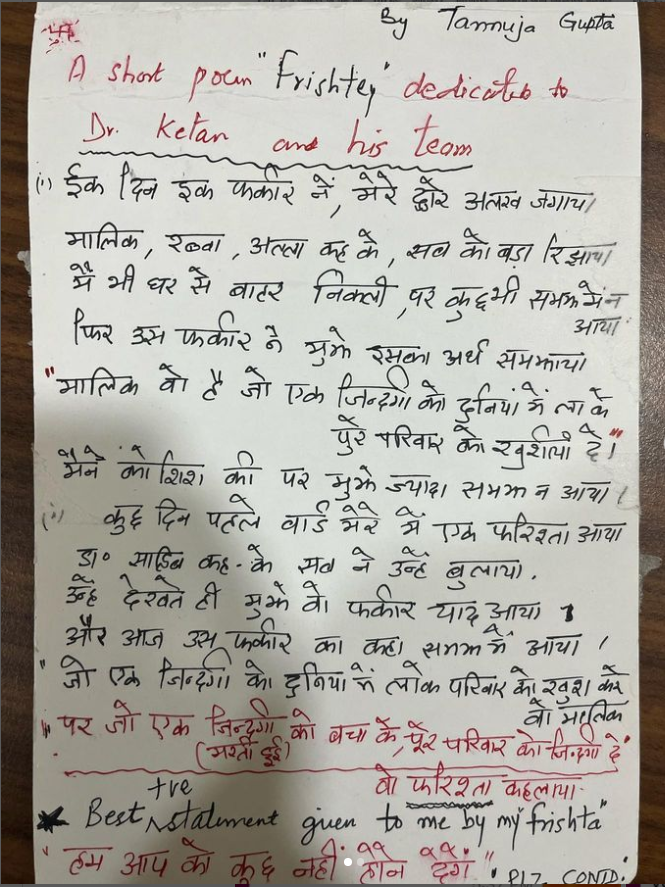 By Tannuja Gupta
A short poem "Frishtey" dedicated to
Dr. Ketan and his team
(i) ईक दिन इक फकीर नें, मेरे द्वारे अलख जगाया।
मालिक, रब्बा, अल्ला कह के, सब को बड़ा रिझाया।
मैं भी घर से बाहर निकली, पर कुछ भी समझ में न
आया।
फिर उस फकीर ने मुझे इसका अर्थ समझाया
"मालिक वो है जो एक जिन्दगी को दुनियां में ला के
पुरे परिवार को खुशीयाँ दे।"
मैनें कोशिश की पर मुझे ज्यादा समझ न आया।
(ii) कुछ दिन पहले वार्ड मेरे में एक फरिश्ता आया
डा॰ साहिब कह-के सब ने उन्हें बुलाया.
उन्हें देखते ही मुझे वो फकीर याद आया।
और आज उस फकीर का कहा समझ में आया।
"जो एक जिन्दगी को दुनिया में लाके परिवार को खुश करे
वो मालिक
"पर जो एक जिन्दगी को बचा के, पुरे परिवार को जिन्दगी दे"
(मरती हुई)
वो फरिश्ता कहलाया.
+ve
* Best statement given to me by my "frishta"
"हम आप को कुछ नहीं होने देंगें".
Plz CONTD: